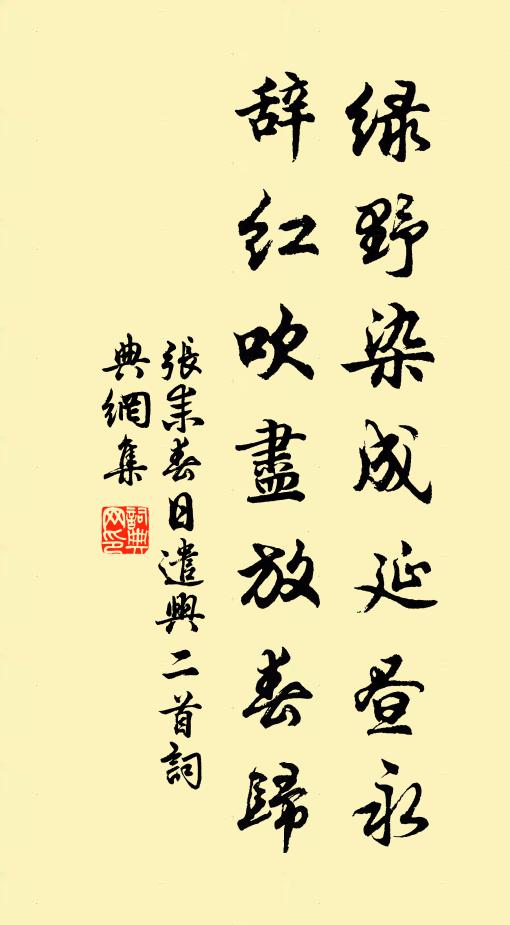 绿野染成延昼永
辞红吹盡放春歸
張耒春日遣興二首詞
典網集
詞典
网印